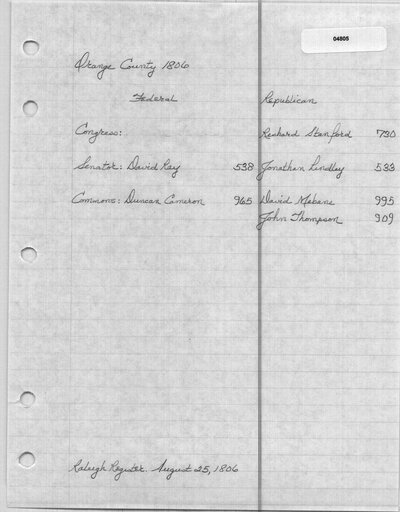 04805
Orange County 1806
Federal Republican
Congress: Richard Stanford 730
Senator: David Ray 538 Jonathan Lindley 533
Commons: Duncan Cameron 965 David Mebane 995
John Thompson 909
Raleigh Register. August 25, 1806